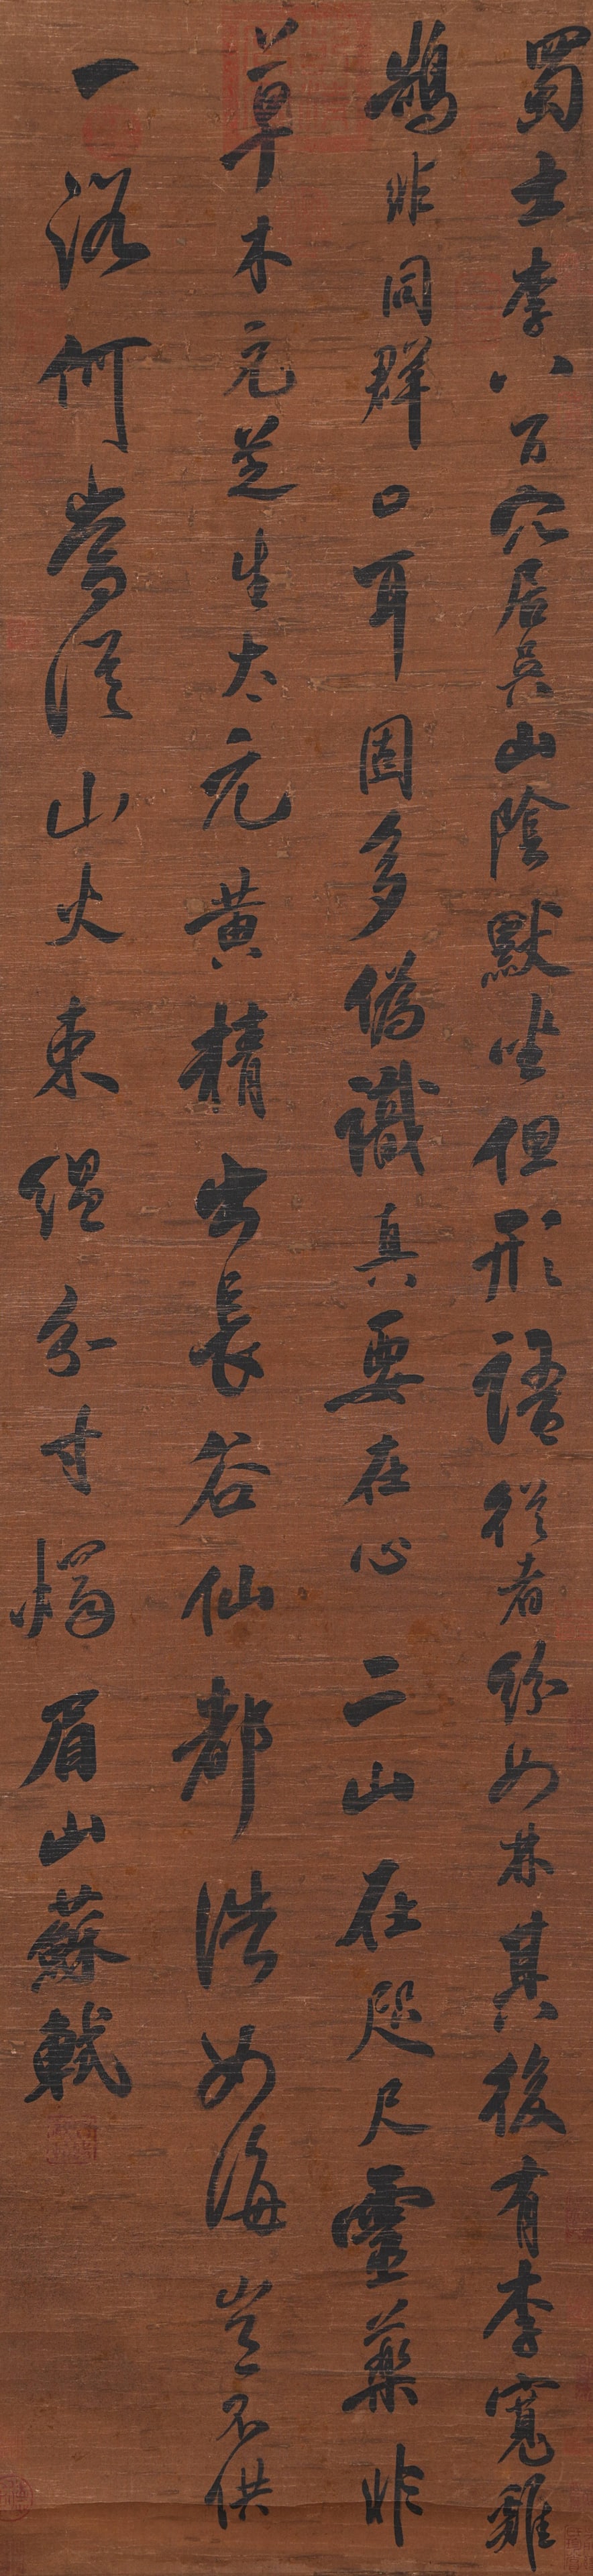 蜀士李八百穴居吳山陰默坐但形語從者紛如林其後有李寬雞
鵠非同群口耳固多偽識真要在心二山在咫尺靈藥非
草木元芝生太元黃精出長谷仙都浩如海豈不供
一浴何當從山火束縕分寸燭眉山蘇軾